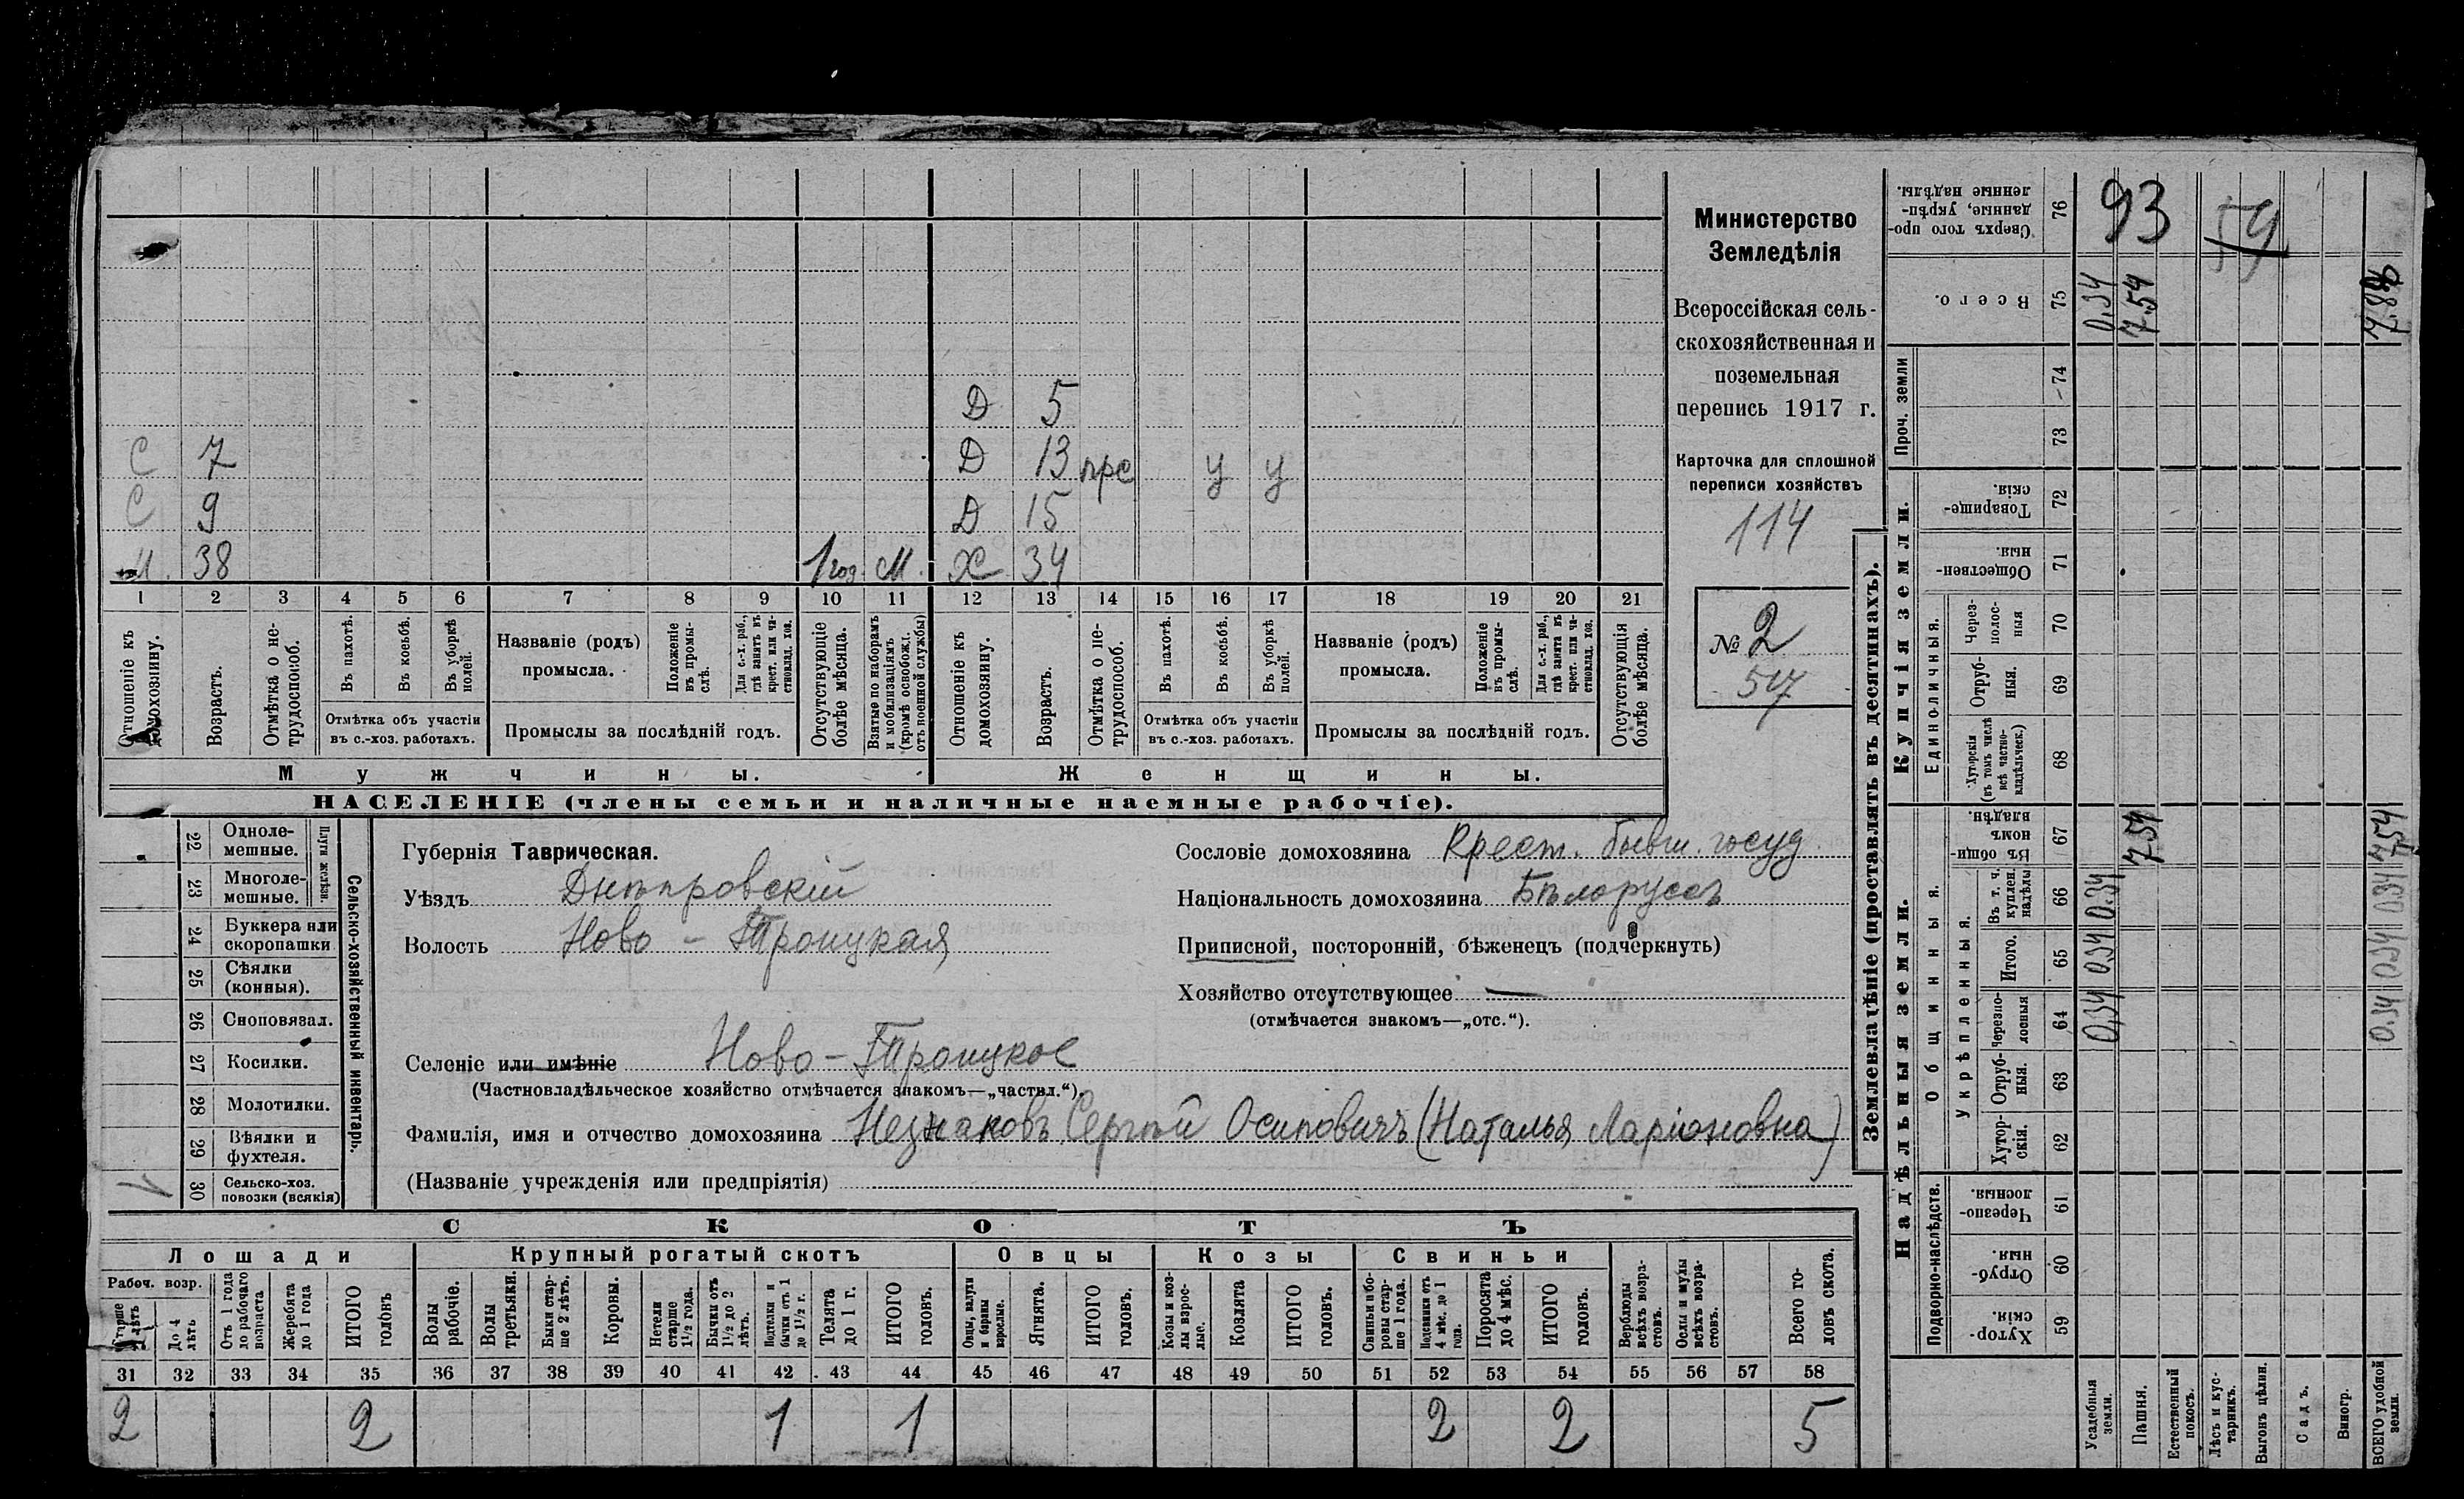 Министерство
Земледѣлія
Всероссійская сель-
скохозяйственная и
поземельная
перепись 1917 г.
Карточка для сплошной
переписи хозяйствъ
114
№ 2
517
Д 5
С 7 Д 13 прс у у
С 9 Д 15
М. 38 1 год. М. Х 34
1 2 3 4 5 6 7 8 9 10 11 12 13 14 15 16 17 18 19 20 21
Отношеніе къ домохозяину.
Возрастъ.
Отмѣтка о не-трудоспособ.
Въ пахотѣ.
Въ косьбѣ.
Въ уборкѣ полей.
Отмѣтка объ участіи
въ с.-хоз. работахъ.
Названіе (родъ)
промысла.
Положеніе въ промы-слѣ.
Для с.-х. раб., гдѣ занятъ въ крест. или ча-стновлад. хоз.
Промыслы за послѣдній годъ.
Отсутствующіе болѣе мѣсяца.
Взятые по наборамъ и мобилизаціямъ (кромѣ освобожд. отъ военной службы)
Отношеніе къ домохозяину.
Возрастъ.
Отмѣтка о не-трудоспособ.
Въ пахотѣ.
Въ косьбѣ.
Въ уборкѣ полей.
Отмѣтка объ участіи
въ с.-хоз. работахъ.
Названіе (родъ)
промысла.
Положеніе въ промы-слѣ.
Для с.-х. раб., гдѣ занята въ крест. или ча-стновлад. хоз.
Промыслы за послѣдній годъ.
Отсутствующія болѣе мѣсяца.
Мужчины.
Женщины.
НАСЕЛЕНІЕ (члены семьи и наличные наемные рабочіе).
Сельско-хозяйственный инвентарь.
Плуги желѣзн.
22 Одноле-мешные.
23 Многоле-мешные.
24 Буккера или скоропашки
25 Сѣялки (конныя).
26 Сноповязал.
27 Косилки.
28 Молотилки.
29 Вѣялки и фухтеля.
30 Сельско-хоз. повозки (всякія)
Губернія Таврическая.
Уѣздъ Днѣпровскій
Волость Ново-Троицкая
Сословіе домохозяина Крест. бывш. госуд.
Національность домохозяина Бѣлоруссъ
Приписной, посторонній, бѣженецъ (подчеркнуть)
Хозяйство отсутствующее —
(отмѣчается знакомъ—„отс.“).
Селеніе или имѣніе Ново-Троицкое
(Частновладѣльческое хозяйство отмѣчается знакомъ—„частвл.“).
Фамилія, имя и отчество домохозяина Незнаковъ Сергѣй Осиповичъ (Наталья Ларіоновна)
(Названіе учрежденія или предпріятія)
СКОТЪ
Лошади
Крупный рогатый скотъ
Овцы
Козы
Свиньи
Рабоч. возр.
Старше 4 лѣтъ
До 4 лѣтъ
Отъ 1 года до рабочаго возраста
Жеребята до 1 года
ИТОГО головъ
Волы рабочіе.
Волы третьяки.
Быки стар-ше 2 лѣтъ.
Коровы.
Нетели старше 1½ года.
Бычки отъ 1½ до 2 лѣтъ.
Подтелки и бычки отъ 1 до 1½ г.
Телята до 1 г.
ИТОГО головъ.
Овцы, валухи и бараны взрослые.
Ягнята.
ИТОГО головъ.
Козы и коз-лы взрос-лые.
Козлята
ИТОГО головъ.
Свиньи и бо-ровы стар-ше 1 года.
Подсвинки отъ 4 мѣс. до 1 года.
Поросята до 4 мѣс.
ИТОГО головъ.
Верблюды всѣхъ возра-стовъ.
Ослы и мулы всѣхъ возра-стовъ.
Всего го-ловъ скота.
31 32 33 34 35 36 37 38 39 40 41 42 43 44 45 46 47 48 49 50 51 52 53 54 55 56 57 58
2 2 1 1 2 2 5
Землевладѣніе (проставлять въ десятинахъ).
Надѣльныя земли.
Купчія земли.
Проч. земли
Подворно-наслѣдств.
Общинныя.
Укрѣпленныя.
Единоличныя.
Сверхъ того про-данные, укрѣп-ленные надѣлы. 76 93 59
Всего. 75 0.34 7.54 7.88
74
73
Товарище-скія. 72
Обществен-ныя. 71
Через-полос-ныя 70
Отруб-ныя. 69
Хуторскія (въ томъ числѣ всѣ частно-владѣльческ.) 68
Въ общи-номъ владѣн. 67 7.54 7.54
Въ т. ч. куплен. надѣлы 66 0.34 0.34
Итого. 65 0.34 0.34
Черезпо-лосныя 64 0,34 0.34
Отруб-ныя. 63
Хутор-скія. 62
Черезпо-лосныя. 61
Отруб-ныя. 60
Хутор-скія. 59
Усадебныя земли.
Пашня.
Естественный покосъ.
Лѣсъ и кус-тарникъ.
Выгонъ цѣлин.
Садъ.
Виногр.
ВСЕГО удобной земли.